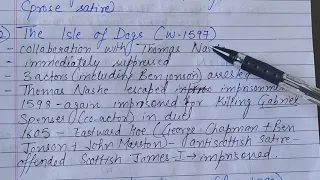 (prose satire)
The Isle of Dogs (W-1597)
- collaboration with Thomas Nas
- immediately suppresed
- 3 actors (including Ben Jonson) arrested
- Thomas Nashe escaped imprisonm
1598 - again imprisoned for killing Gabriel
Spenser (co-actor) in duel
1605 - Eastward Hoe (George Chapman + Ben
Jonson + John Marston) - antiscottish satire -
offended Scottish James-I → imprisoned.